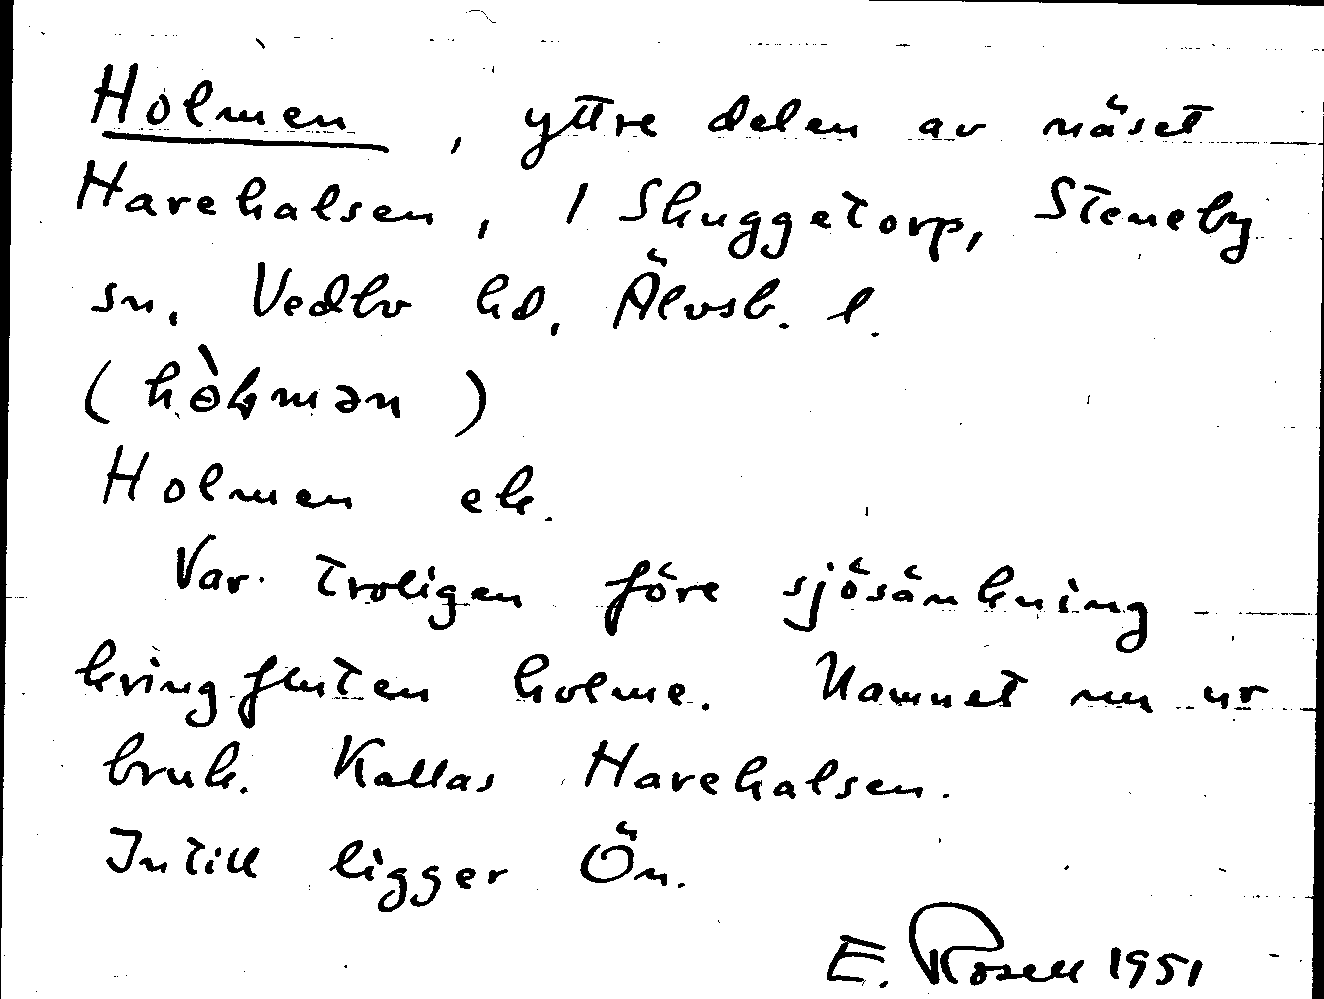 Holmen, yttre delen av näset
Harehalsen, 1 Skuggetorp, Steneby
sn, Vedbo hd, Älvsb. l.
(hòłmən)
Holmen ek.
Var troligen före sjösänkning
kringfluten holme. Namnet nu ur
bruk. Kallas Harehalsen.
Intill ligger Ön.
E. Rosell 1951